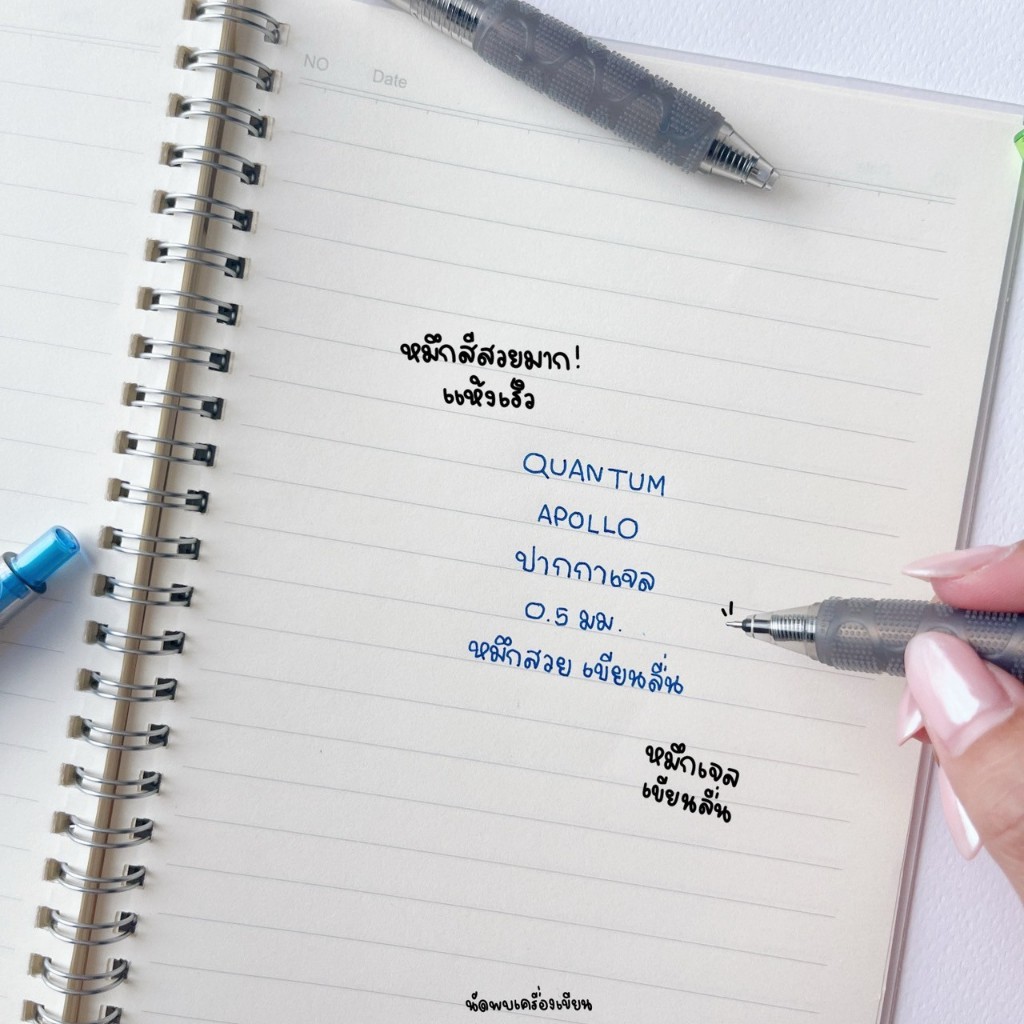 NO Date
หมึกสีสวยมาก!
แห้งเร็ว
QUANTUM
APOLLO
ปากกาเจล
0.5 มม.
หมึกสวย เขียนลื่น
หมึกเจล
เขียนลื่น
นัดพบเครื่องเขียน